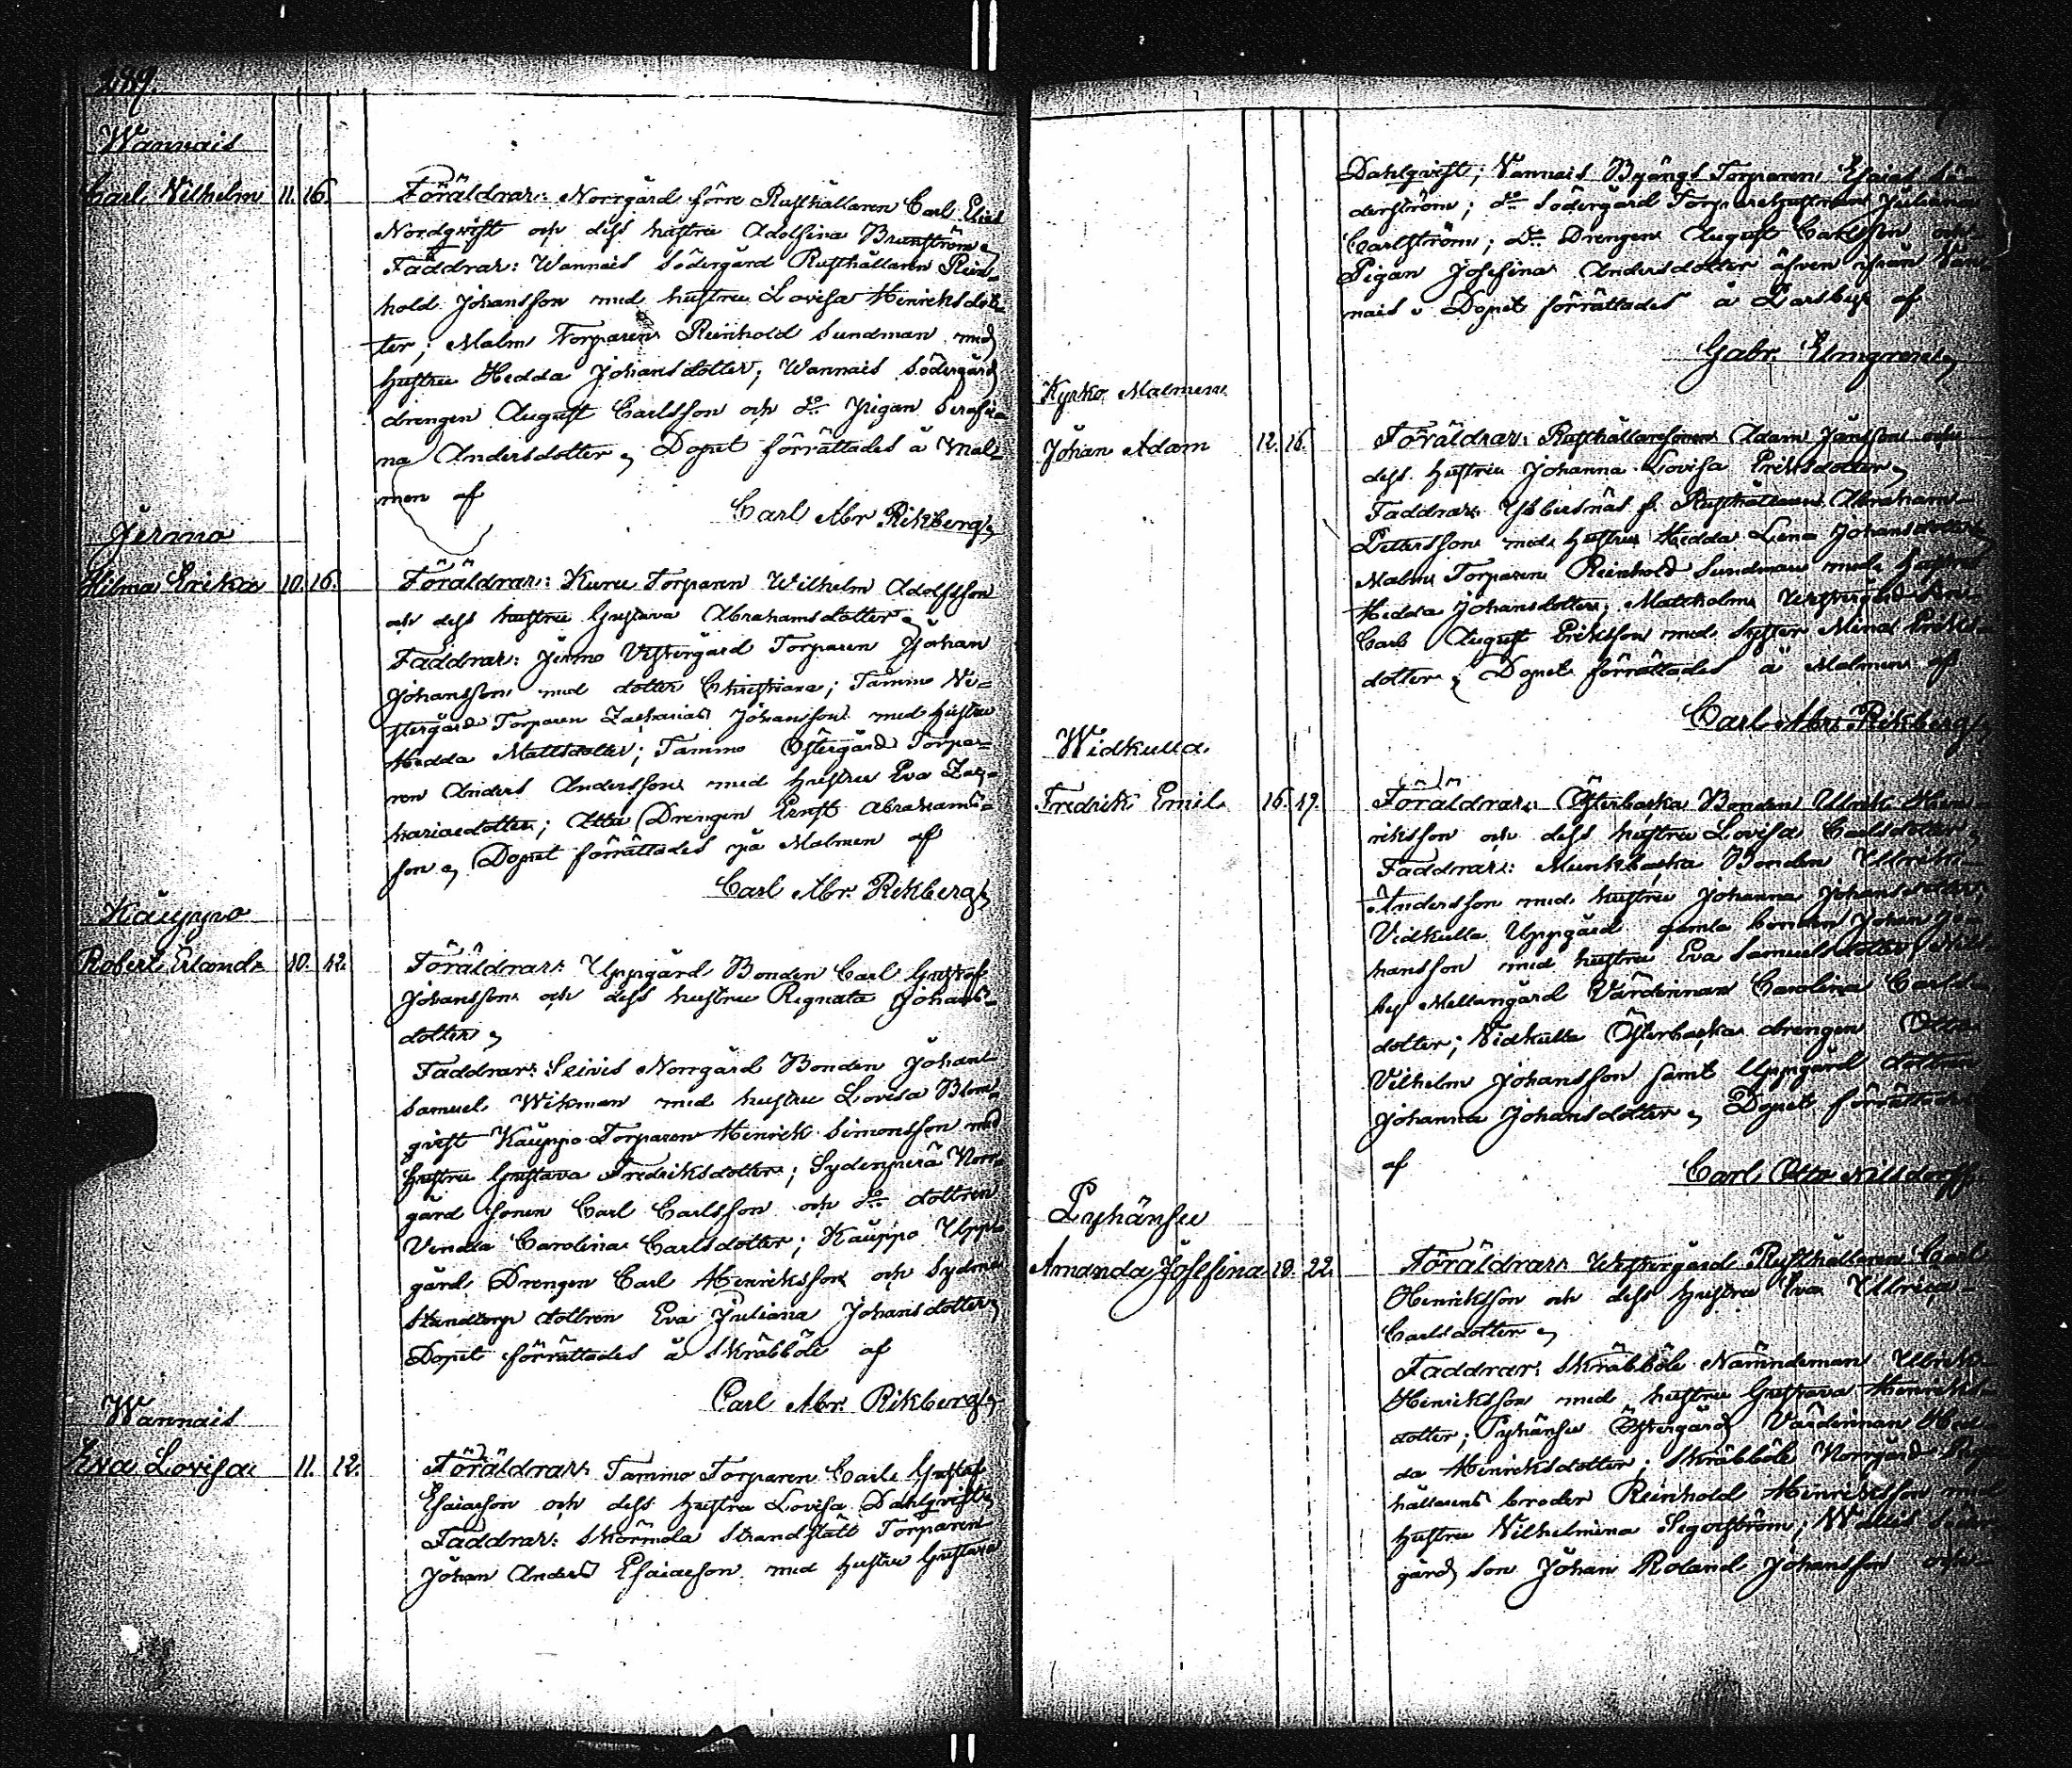 289.
Wannais
Carl Wilhelm 11. 16. Föräldrar: Norrgård förre Rusthållaren Carl Elias
Nordqvist och dess hustru Adolfina Brunström,
Faddrar: Wannais Södergård Rusthållaren Rein-
hold Johansson med hustru Lovisa Henriksdot-
ter; Malm Torparen Reinhold Sundman med
hustru Hedda Johansdotter; Wannais Södergård
drengen August Carlsson och do pigan Serafi-
na Andersdotter, Dopet förrättades å Mal-
men af
Carl Abr Rikberg,
Jermo
Hilma Erika 10. 16. Föräldrar: Kuru Torparen Wilhelm Adolfsson
och dess hustru Gustava Abrahamsdotter,
Faddrar: Jermo Vestergård Torparen Johan
Johansson med dotter Christiana; Tammo Ve-
stergård Torparen Zacharias Johansson med hustru
Hedda Mattsdotter; Tammo Östergård Torpa-
ren Anders Andersson med hustru Eva Zac-
hariaedotter; Drengen Ernst Abrahams-
son, Dopet förrättades på Malmen af
Carl Abr. Rikberg,
Käuppo
Robert Erland 10. 12. Föräldrar: Uppgård Bonden Carl Gustaf
Johansson och dess hustru Regnata Johans-
dotter,
Faddrar: Seivis Norrgård Bonden Johan
Samuel Wikman med hustru Lovisa Blom-
qvist Käuppo Torparen Henrik Simonsson med
hustru Gustava Fredriksdotter; Sydenperä Norr-
gård sonen Carl Carlsson och do dottren
Vendla Carolina Carlsdotter; Käuppo Upp-
gård Drengen Carl Henriksson och Sydmo
dottren Eva Juliana Johansdotter,
Dopet förrättades å Skräbböle af
Carl Abr. Rikberg,
Wannais
Eva Lovisa 11. 12. Föräldrar: Tammo Torparen Carl Gustaf
Esaiasson och dess hustru Lovisa Dahlqvist,
Faddrar: Skärmola Strandstatt Torparen
Johan Anders Esaiasson med hustru Gustava
Dahlqvist; Vannais Byängs Torparen Esaias Sö-
derström; do Södergård Torpare hustrun Juliana
Carlström; do Drengen August Carlsson och
Pigan Josefina Andersdotter äfven ifrån Van-
nais, Dopet förrättades å Larsby af
Gabr.
Kyrko Malmen
Johan Adam 12. 16. Föräldrar: Rusthållaresonen Adam Jansson och
dess hustru Johanna Lovisa Eriksdotter,
Faddrar: Ybbersnäs f. Rusthållaren Abraham
Pettersson med hustru Hedda Lena Johansdotter,
Malm Torparen Reinhold Sundman med hustru
Hedda Johansdotter; Mattholm Vestergård
Carl August Eriksson med syster Mina Eriks-
dotter, Dopet förrättades å Malmen af
Carl Abr. Rikberg,
Widkulla.
Fredrik Emil 16. 19. Föräldrar: Österbacka Bonden Ulrik Hen-
riksson och dess hustru Lovisa Carlsdotter,
Faddrar: Munkbacka Bonden Ullrik
Andersson med hustru Johanna Johansdotter;
Vidkulla Uppgård gamla bonden Johan Jo-
hansson med hustru Eva Samuelsdotter;
by Mellangård Värdinnan Carolina Carls-
dotter; Vidkulla Österbacka drengen Otto
Vilhelm Johansson samt Uppgård dottren
Johanna Johansdotter, Dopet förrättades
af Carl Otto Nilsdorff.
Pyhänsu
Amanda Josefina 10. 22. Föräldrar: Westergård Rusthållaren Carl
Henriksson och dess hustru Eva Ulrica
Carlsdotter,
Faddrar: Skräbböle Nämndeman Ulrik
Henriksson med hustru Gustava Henriks-
dotter; Pyhänsu Östergård Värdinnan Hed-
da Henriksdotter; Skräbböle Norrgård Rust-
hållarens broder Reinhold Henriksson med
hustru Wilhelmina Segerström;
gård son Johan Roland Johansson och